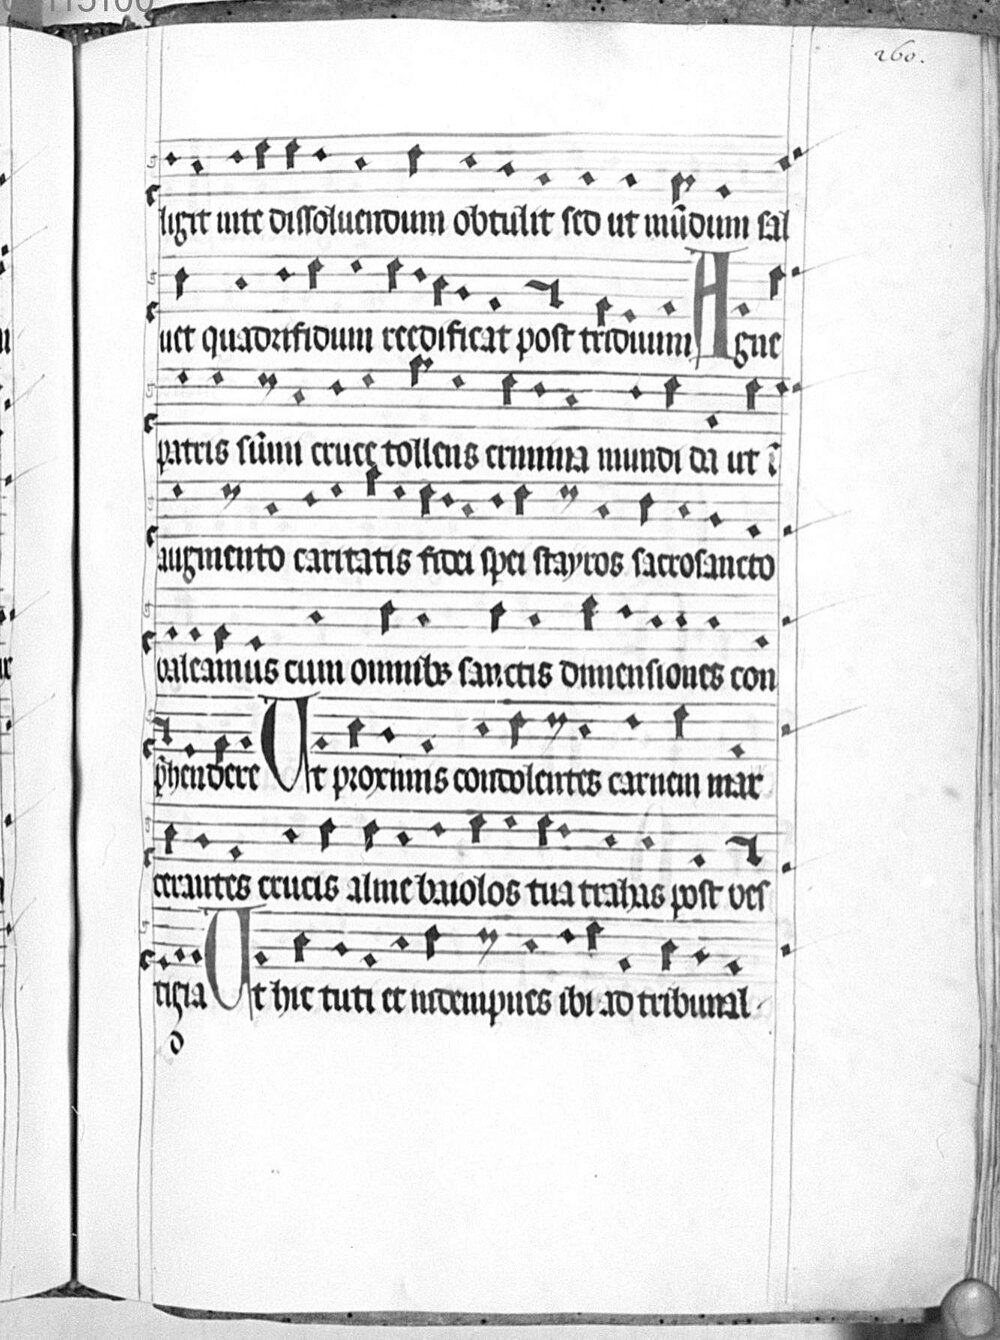 260.
ligit uite dissoluendum obtulit sed ut mūdum sal
uet quadrifidum reedificat post triduum Agne
patris sūmi cruce tollens crimina mundi da ut ī
augmento caritatis fidei spei stayros sacrosancto
ualeamus cum omnibꝫ sanctis dimensiones con
p̄hendere Ut proximis condolentes carnem mar
cerantes crucis alme baiolos tua trahas post ues
tigia Ut hic tuti et indempnes ibi ad tribunal